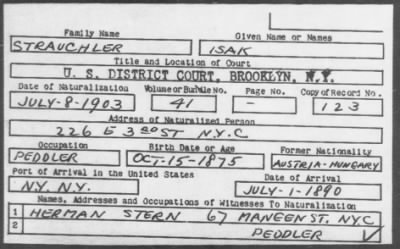 Family Name Given Name or Names
STRAUCHLER ISAK
Title and Location of Court
U. S. DISTRICT COURT, BROOKLYN, N.Y.
Date of Naturalization Volume or Bundle No. Page No. Copy of Record No.
JULY-8-1903 41 - 123
Address of Naturalized Person
226 E 3RD ST N.Y.C
Occupation Birth Date or Age Former Nationality
PEDDLER OCT-15-1875 AUSTRIA-HUNGARY
Port of Arrival in the United States Date of Arrival
N.Y. N.Y. JULY-1-1890
Names, Addresses and Occupations of Witnesses To Naturalization
1 HERMAN STERN 67 MANGEN ST. N.Y.C
2 PEDDLER ✓